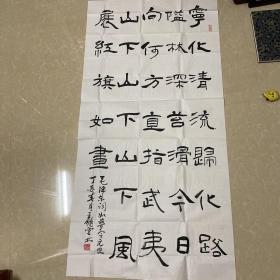 寧化清流歸化路
隘林深苔滑今日
向何方直指武夷
山下山下山下風
展紅旗如畫
毛澤東詞如夢令元旦
丁亥春月